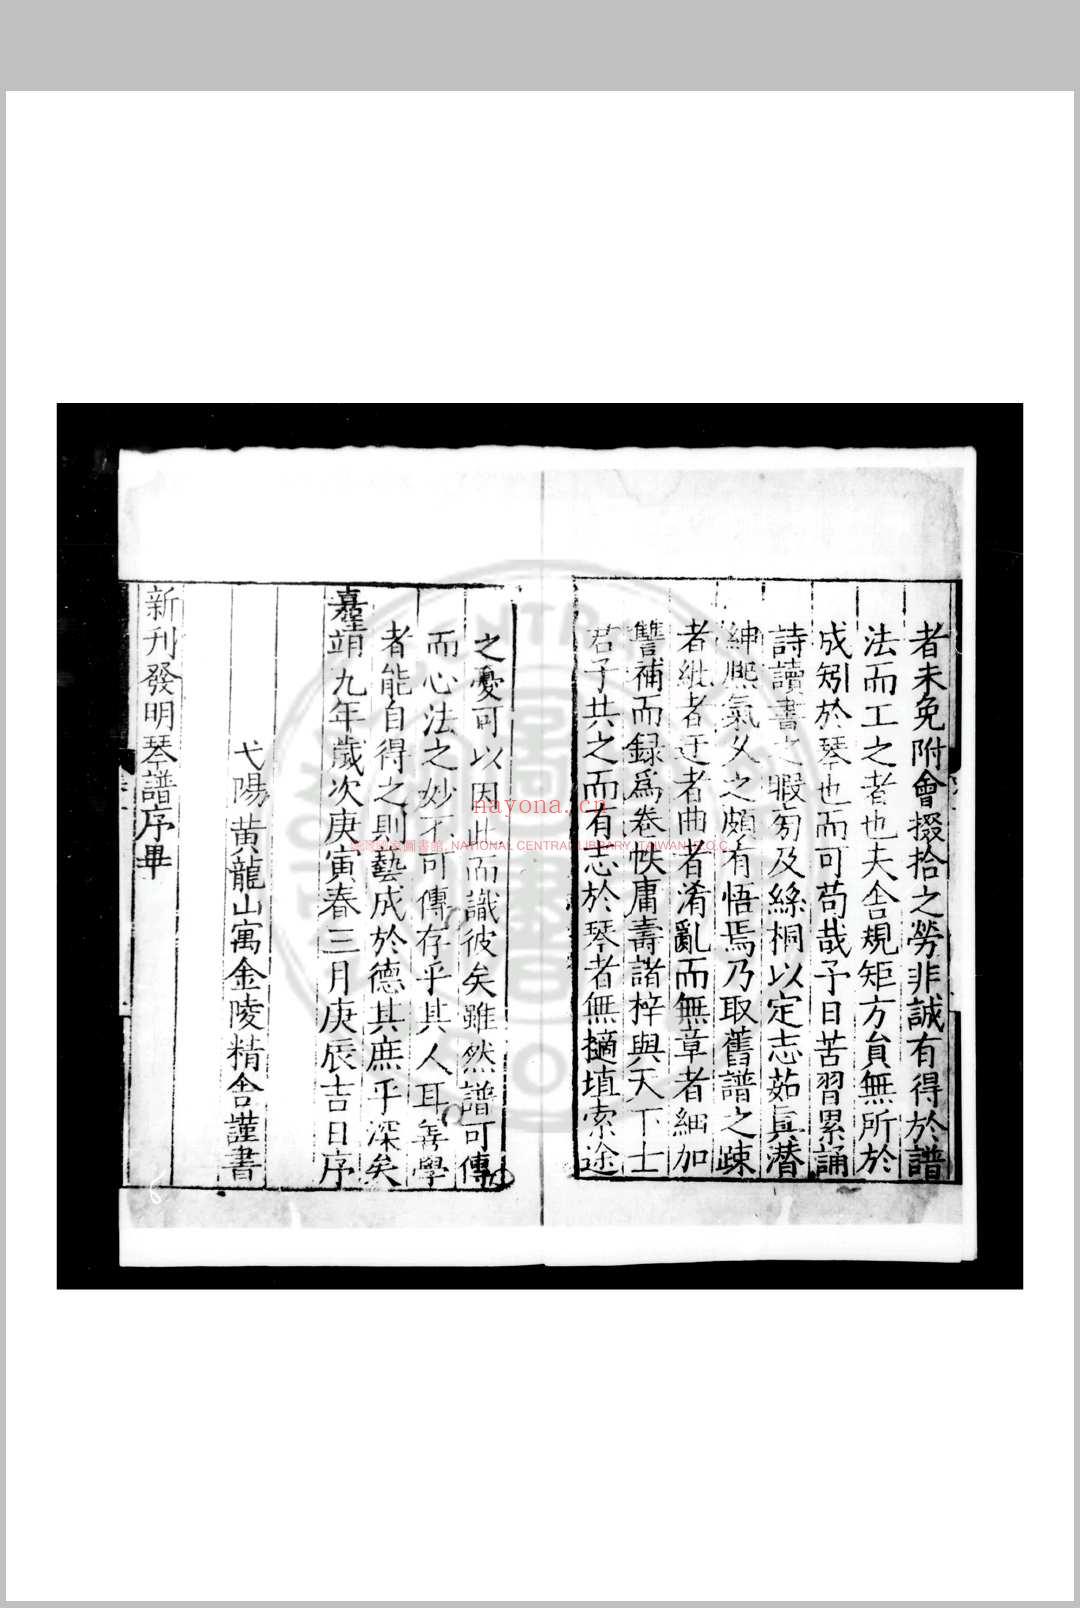 者未免附會掇拾之勞非誠有得於譜
法而工之者也夫舎規矩方負無所於
成矧於琴也而可苟哉予日苦習累誦
詩讀書之暇旁及絲桐以定志茹真潜
紳熈氣乆之頗有悟焉乃取舊譜之踈
者紕者迂者曲者淆亂而無章者細加
讐補而録爲卷帙庸壽諸梓與天下士
君子共之而有志於琴者無擿埴索途
之憂可以因此而識彼矣雖然譜可傳
而心法之妙不可傳存乎其人耳善學
者能自得之則藝成於德其庶乎深矣
嘉靖九年歲次庚寅春三月庚辰吉日序
弋陽黄龍山寓金陵精舎謹書
新刋發明琴譜序畢
nayona.cn
國家圖書館, NATIONAL CENTRAL LIBRARY, TAIWAN, R.O.C.